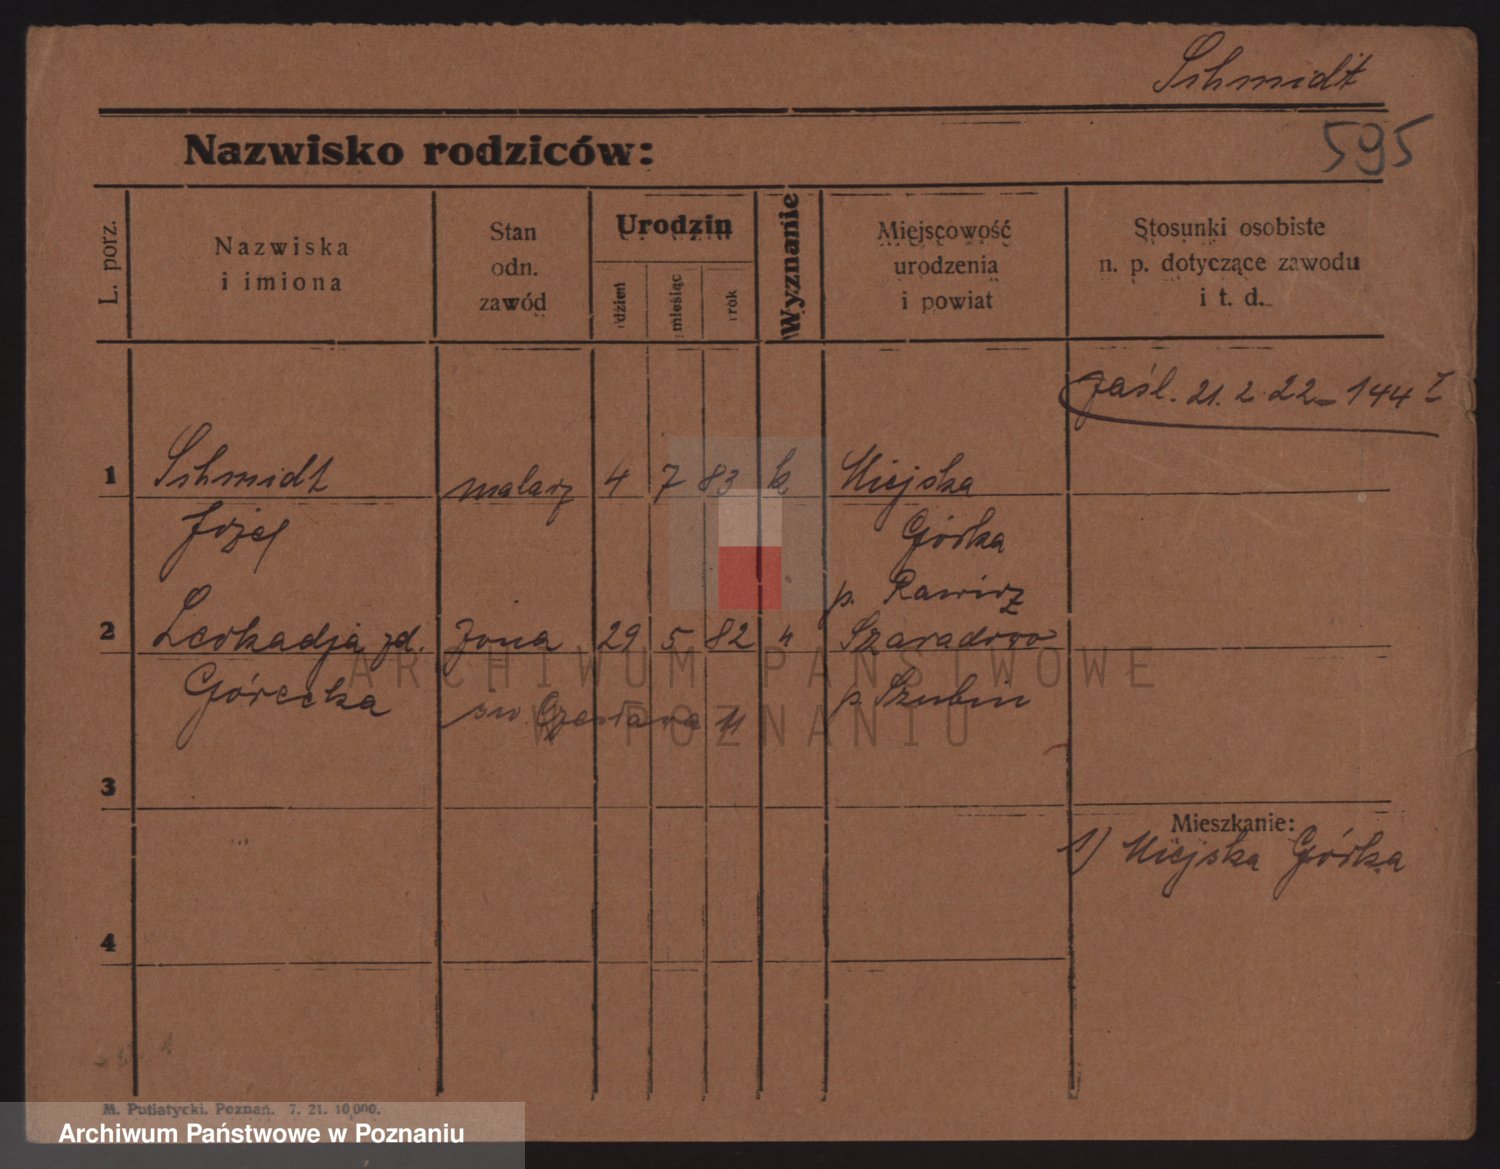 Schmidt
Nazwisko rodziców:
595
L. porz.
Nazwiska
i imiona
Stan
odn.
zawód
Urodzin
dzień
miesiąc
rok
Wyznanie
Miejscowość
urodzenia
i powiat
Stosunki osobiste
n. p. dotyczące zawodu
i t. d.
zaśl. 21. 2. 22 – 144 I
1 Schmidt malarz 4 7 83 k Miejska
Józef Górka
p. Rawicz
2 Leokadja zd. żona 29 5 82 " Szaradowo
Górecka św. Czesława 11 p. Szubin
3
Mieszkanie:
1) Miejska Górka
4
M. Putiatycki, Poznań. 7. 21. 10,000.
ARCHIWUM PAŃSTWOWE
W POZNANIU
Archiwum Państwowe w Poznaniu